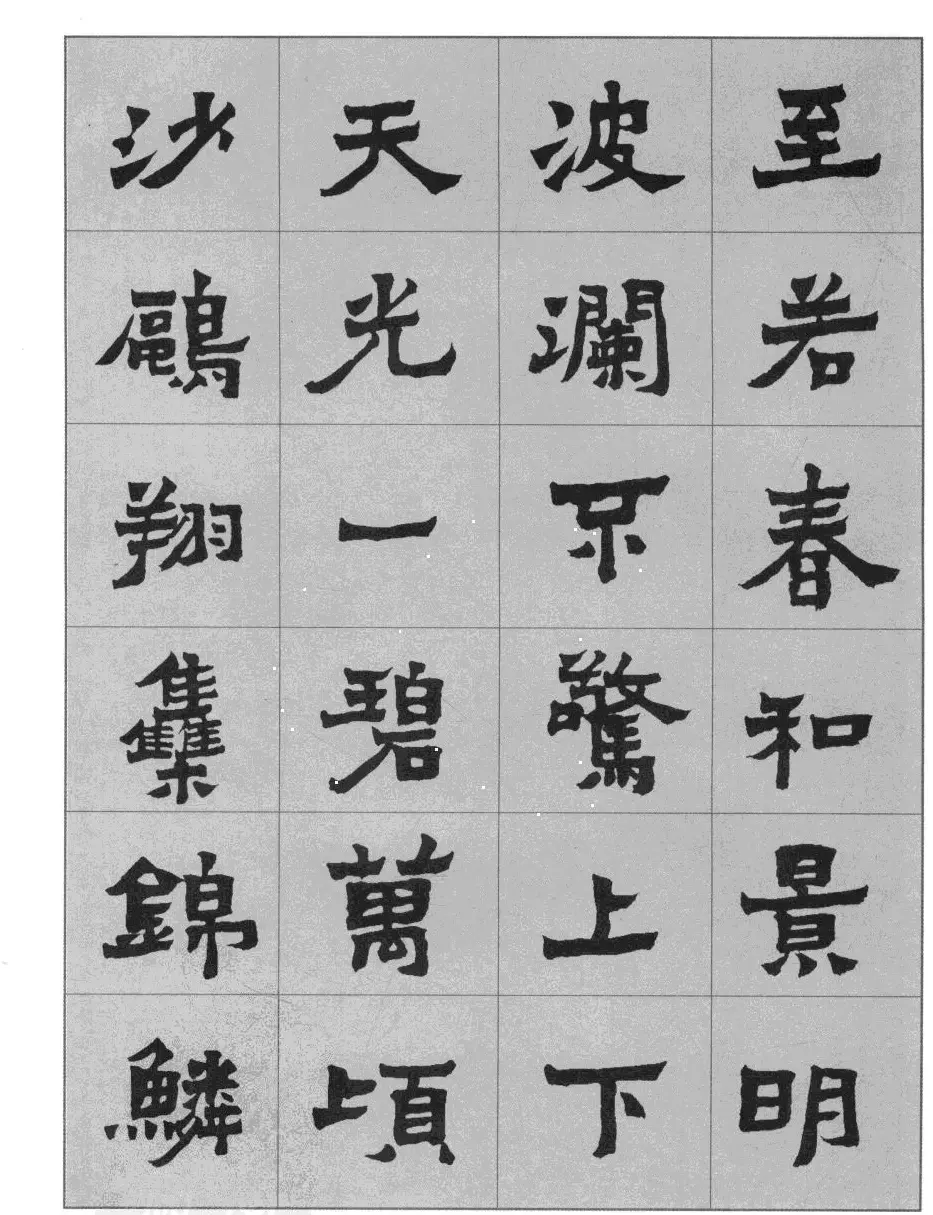 至若春和景明
波瀾不驚上下
天光一碧萬頃
沙鷗翔集錦鱗